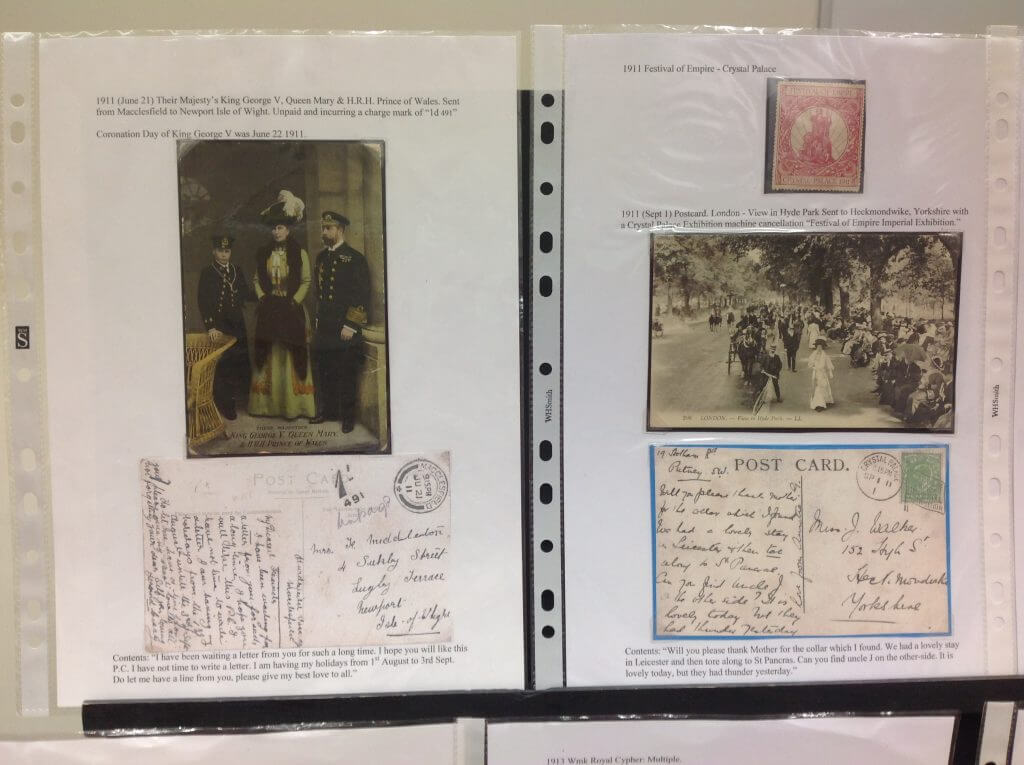 1911 (June 21) Their Majesty's King George V, Queen Mary & H.R.H. Prince of Wales. Sent
from Macclesfield to Newport Isle of Wight. Unpaid and incurring a charge mark of "1d 491"
Coronation Day of King George V was June 22 1911.
THEIR MAJESTIES
KING GEORGE V. QUEEN MARY
& H.R.H. PRINCE OF WALES
POST CARD
491
MACCLESFIELD
JU 21
11
Mrs. H. Middleton
4
Street
Terrace
Newport
Isle-of-Wight
Contents: "I have been waiting a letter from you for such a long time. I hope you will like this
P.C. I have not time to write a letter. I am having my holidays from 1st August to 3rd Sept.
Do let me have a line from you, please give my best love to all."
S
WHSmith
1911 Festival of Empire - Crystal Palace
FESTIVAL OF EMPIRE
CRYSTAL PALACE 1911
1911 (Sept 1) Postcard. London - View in Hyde Park Sent to Heckmondwike, Yorkshire with
a Crystal Palace Exhibition machine cancellation "Festival of Empire Imperial Exhibition."
LONDON. — View in Hyde Park. — LL.
POST CARD.
Putney SW.
CRYSTAL PALACE
SP 1 11
Will you please thank Mother
for the collar which I found
We had a lovely stay
in Leicester & then tore
along to St Pancras.
Can you find uncle J
on the other side? It is
lovely today but they
had thunder yesterday
Miss J. Walker
152 High St
Heckmondwike
Yorkshire
Contents: "Will you please thank Mother for the collar which I found. We had a lovely stay
in Leicester and then tore along to St Pancras. Can you find uncle J on the other-side. It is
lovely today, but they had thunder yesterday."
WHSmith
1913 Wmk Royal Cypher: Multiple.